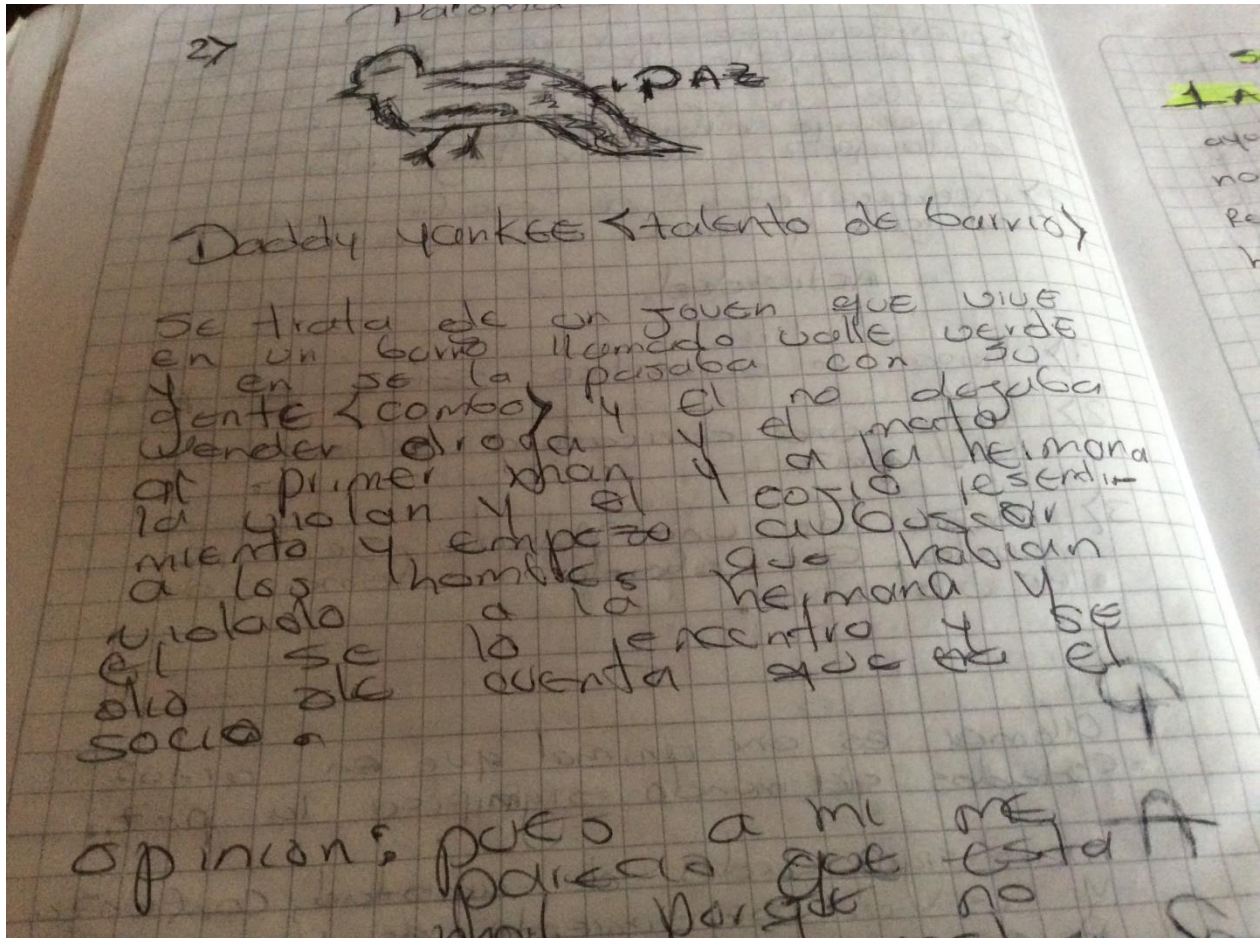 Paloma
27
PAZ
Daddy Yankee <talento de barrio>
Se trata de un joven que vive
en un barrio llamado valle verde
y en se la pasaba con su
gente <combo> y el no dejaba
vender droga y el mato
al primer man y a la hermana
la violan y el cojio resenti-
miento y empezo a buscar
a los hombres que habian
violado a la hermana y
el se lo encontro y se
dio de cuenta que el
socio.
Opinion: pues a mi me
parecio que esta
mal porque no